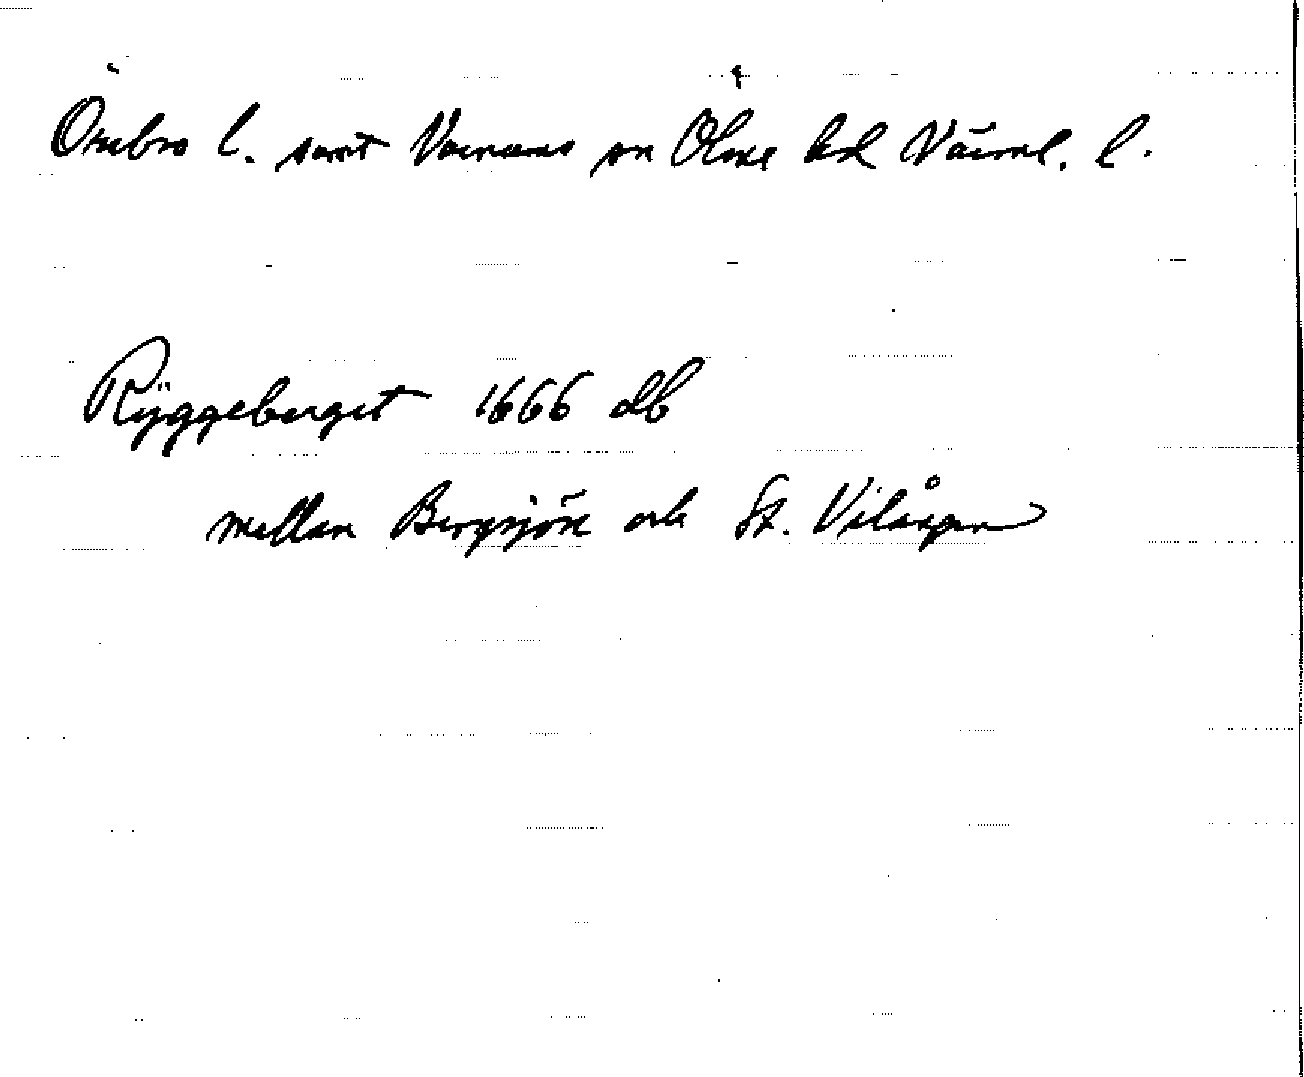 Örebro l. samt Varnums sn Ölme hd Värml. l.
Rÿggeberget 1666 db
mellan Bergsjön och St. Vilången